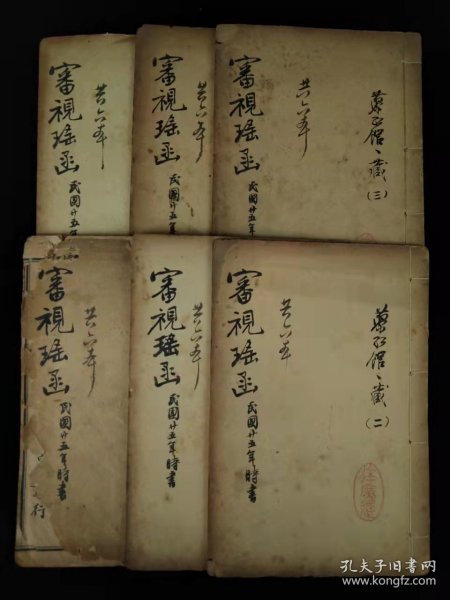 審視瑤函
民國廿五年
共六本
審視瑤函
民國廿五年
共六本
審視瑤函
民國廿五年
共六本
藏(三)
審視瑤函
民國廿五年時書
共六本
行
審視瑤函
民國廿五年時書
共六本
審視瑤函
民國廿五年時書
共六本
藏(二)
孔夫子旧书网
www.kongfz.com